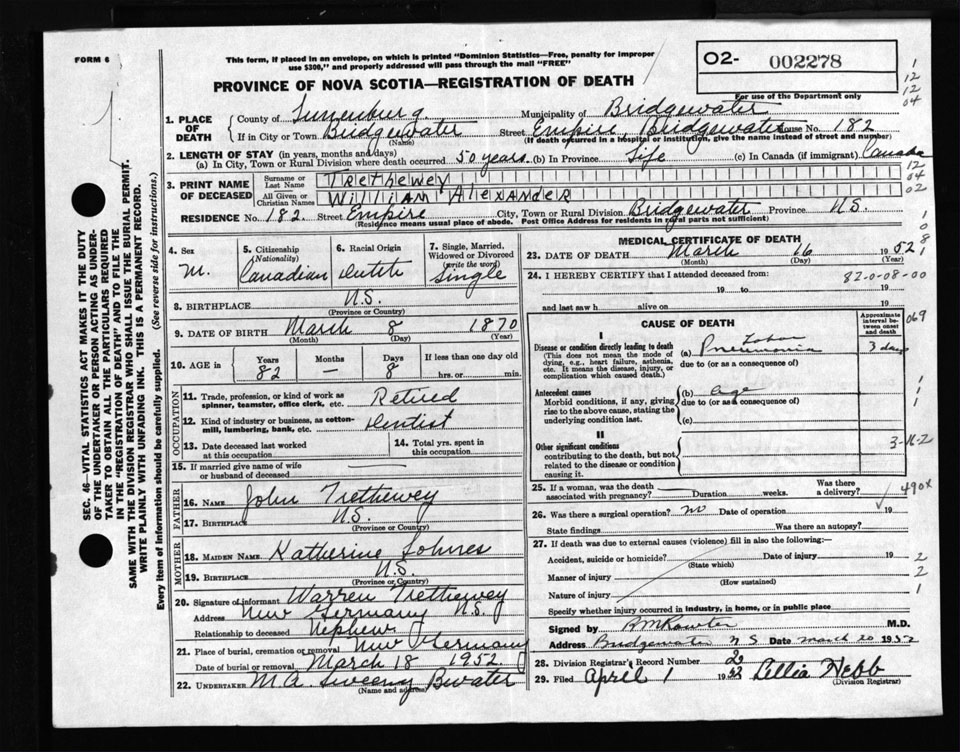 FORM 6
This form, if placed in an envelope, on which is printed "Dominion Statistics—Free, penalty for improper
use $300," and properly addressed will pass through the mail "FREE"
PROVINCE OF NOVA SCOTIA—REGISTRATION OF DEATH
O2- 002278
For use of the Department only
1. PLACE OF DEATH County of Lunenburg. Municipality of Bridgewater
If in City or Town Bridgewater (Name) Street Empire, Bridgewater House No. 182
(If death occurred in a hospital or institution, give the name instead of street and number)
2. LENGTH OF STAY (in years, months and days)
(a) In City, Town or Rural Division where death occurred 50 years. (b) In Province Life (c) In Canada (if immigrant) Canada
3. PRINT NAME OF DECEASED Surname or Last Name TRETHEWEY
All Given or Christian Names WILLIAM ALEXANDER
RESIDENCE No. 182 Street Empire City, Town or Rural Division Bridgewater Province N.S.
(Residence means usual place of abode. Post Office Address for residents in rural parts not sufficient)
4. Sex M.
5. Citizenship (Nationality) Canadian
6. Racial Origin Dutch
7. Single, Married, Widowed or Divorced (write the word) Single
8. BIRTHPLACE N.S. (Province or Country)
9. DATE OF BIRTH March 8 1870
(Month) (Day) (Year)
10. AGE in Years 82 Months — Days 8 If less than one day old hrs. or min.
OCCUPATION
11. Trade, profession, or kind of work as spinner, teamster, office clerk, etc. Retired
12. Kind of industry or business, as cotton-mill, lumbering, bank, etc. Dentist
13. Date deceased last worked at this occupation
14. Total yrs. spent in this occupation
15. If married give name of wife or husband of deceased —
FATHER
16. NAME John Trethewey
17. BIRTHPLACE N.S. (Province or Country)
MOTHER
18. MAIDEN NAME Katherine Lohnes
19. BIRTHPLACE N.S. (Province or Country)
20. Signature of informant Warren Trethewey
Address New Germany N.S.
Relationship to deceased Nephew
21. Place of burial, cremation or removal New Germany
Date of burial or removal March 18 1952.
22. UNDERTAKER M.A. Sweeny Bwater
(Name and address)
MEDICAL CERTIFICATE OF DEATH
23. DATE OF DEATH March 16 1952
(Month) (Day) (Year)
24. I HEREBY CERTIFY that I attended deceased from:
82-0-08-00
19 to 19
and last saw h alive on 19
CAUSE OF DEATH
Approximate interval between onset and death
I
Disease or condition directly leading to death
(This does not mean the mode of dying, e.g., heart failure, asthenia, etc. It means the disease, injury, or complication which caused death.)
(a) Lobar Pneumonia 3 days
due to (or as a consequence of)
Antecedent causes
Morbid conditions, if any, giving rise to the above cause, stating the underlying condition last.
(b) age
due to (or as a consequence of)
(c)
II
Other significant conditions
contributing to the death, but not related to the disease or condition causing it.
3-16-2
25. If a woman, was the death associated with pregnancy? Duration weeks. Was there a delivery?
490x
26. Was there a surgical operation? no Date of operation 19
State findings Was there an autopsy?
27. If death was due to external causes (violence) fill in also the following:—
Accident, suicide or homicide? Date of injury 19
(State which)
Manner of injury
(How sustained)
Nature of injury
Specify whether injury occurred in industry, in home, or in public place
Signed by M.D.
Address Bridgewater N S Date March 20 1952
28. Division Registrar's Record Number
29. Filed April 1 1952 Lillia Hebb
(Division Registrar)
SEC. 46—VITAL STATISTICS ACT MAKES IT THE DUTY
OF THE UNDERTAKER OR PERSON ACTING AS UNDER-
TAKER TO OBTAIN ALL THE PARTICULARS REQUIRED
IN THE "REGISTRATION OF DEATH" AND TO FILE THE
SAME WITH THE DIVISION REGISTRAR WHO SHALL ISSUE THE BURIAL PERMIT.
WRITE PLAINLY WITH UNFADING INK. THIS IS A PERMANENT RECORD.
Every item of information should be carefully supplied. (See reverse side for instructions.)
1
12
12
04
12
04
02
1
0
8
1
069
1
1
1
2
2
1